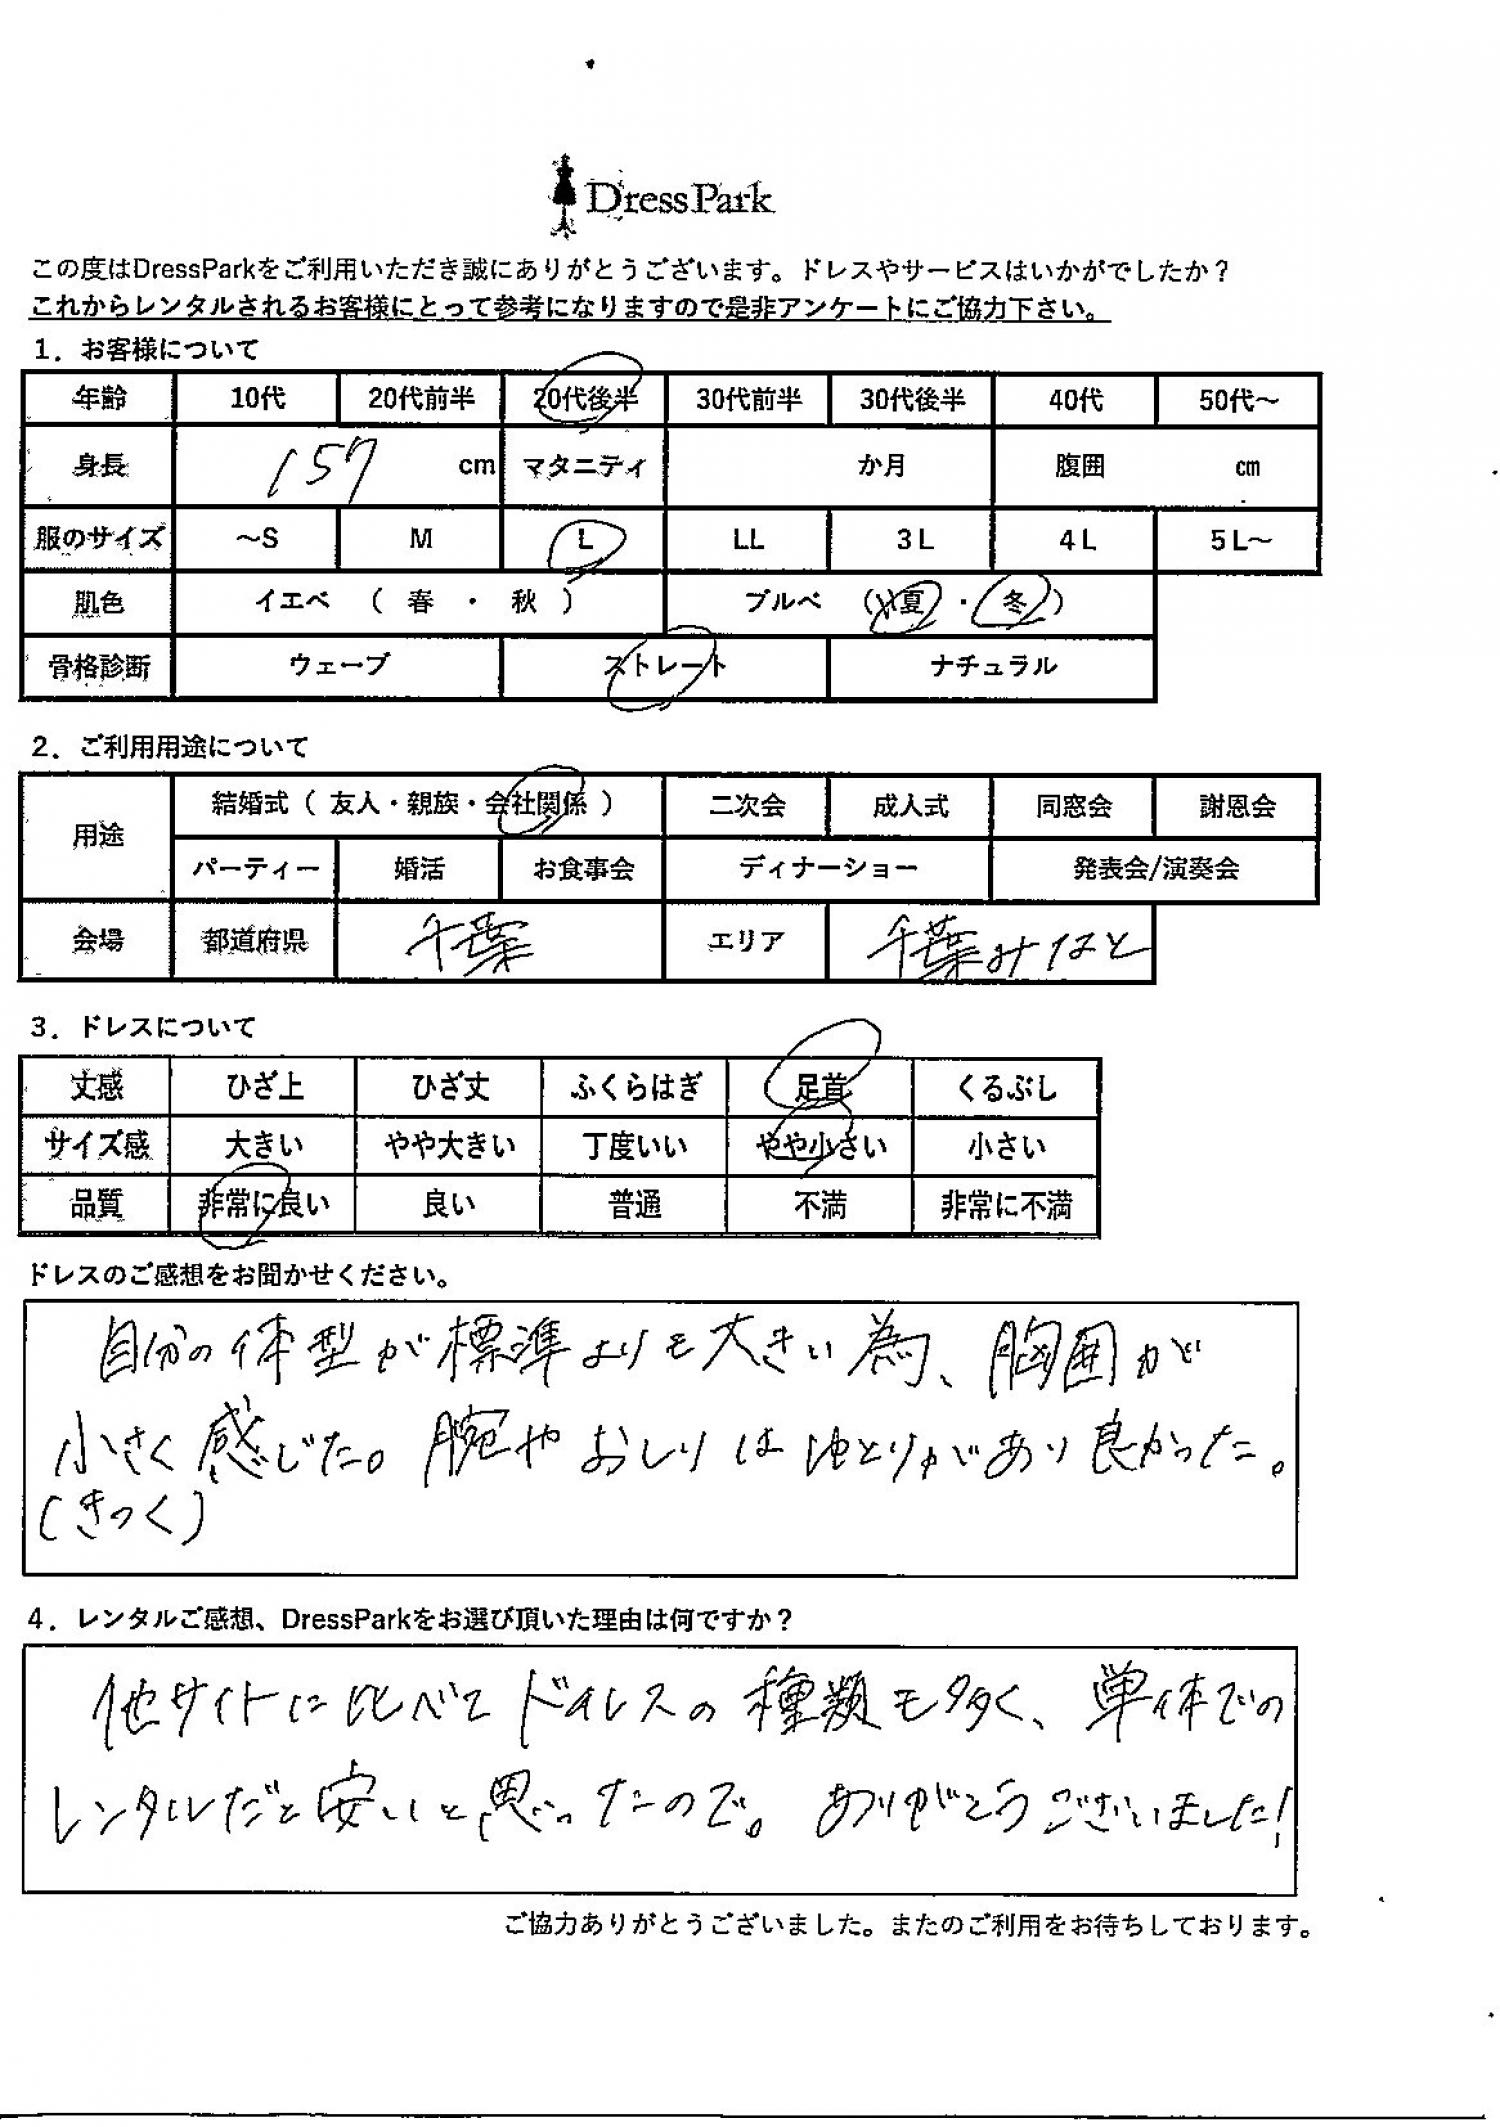 DressPark
この度はDressParkをご利用いただき誠にありがとうございます。ドレスやサービスはいかがでしたか？
これからレンタルされるお客様にとって参考になりますので是非アンケートにご協力下さい。
1．お客様について
年齢 10代 20代前半 20代後半 30代前半 30代後半 40代 50代～
身長 157 cm マタニティ か月 腹囲 cm
服のサイズ ～S M L LL 3L 4L 5L～
肌色 イエベ （ 春 ・ 秋 ） ブルベ （ 夏 ・ 冬 ）
骨格診断 ウェーブ ストレート ナチュラル
2．ご利用用途について
用途 結婚式（ 友人・親族・会社関係 ） 二次会 成人式 同窓会 謝恩会
パーティー 婚活 お食事会 ディナーショー 発表会/演奏会
会場 都道府県 千葉 エリア 千葉みなと
3．ドレスについて
丈感 ひざ上 ひざ丈 ふくらはぎ 足首 くるぶし
サイズ感 大きい やや大きい 丁度いい やや小さい 小さい
品質 非常に良い 良い 普通 不満 非常に不満
ドレスのご感想をお聞かせください。
自分の体型が標準よりも大きい為、胸囲が
小さく感じた。腕やおしりはゆとりがあり良かった。
(きつく)
4．レンタルご感想、DressParkをお選び頂いた理由は何ですか？
他サイトに比べてドレスの種類も多く、単体での
レンタルだと安いと思ったので。ありがとうございました!
ご協力ありがとうございました。またのご利用をお待ちしております。